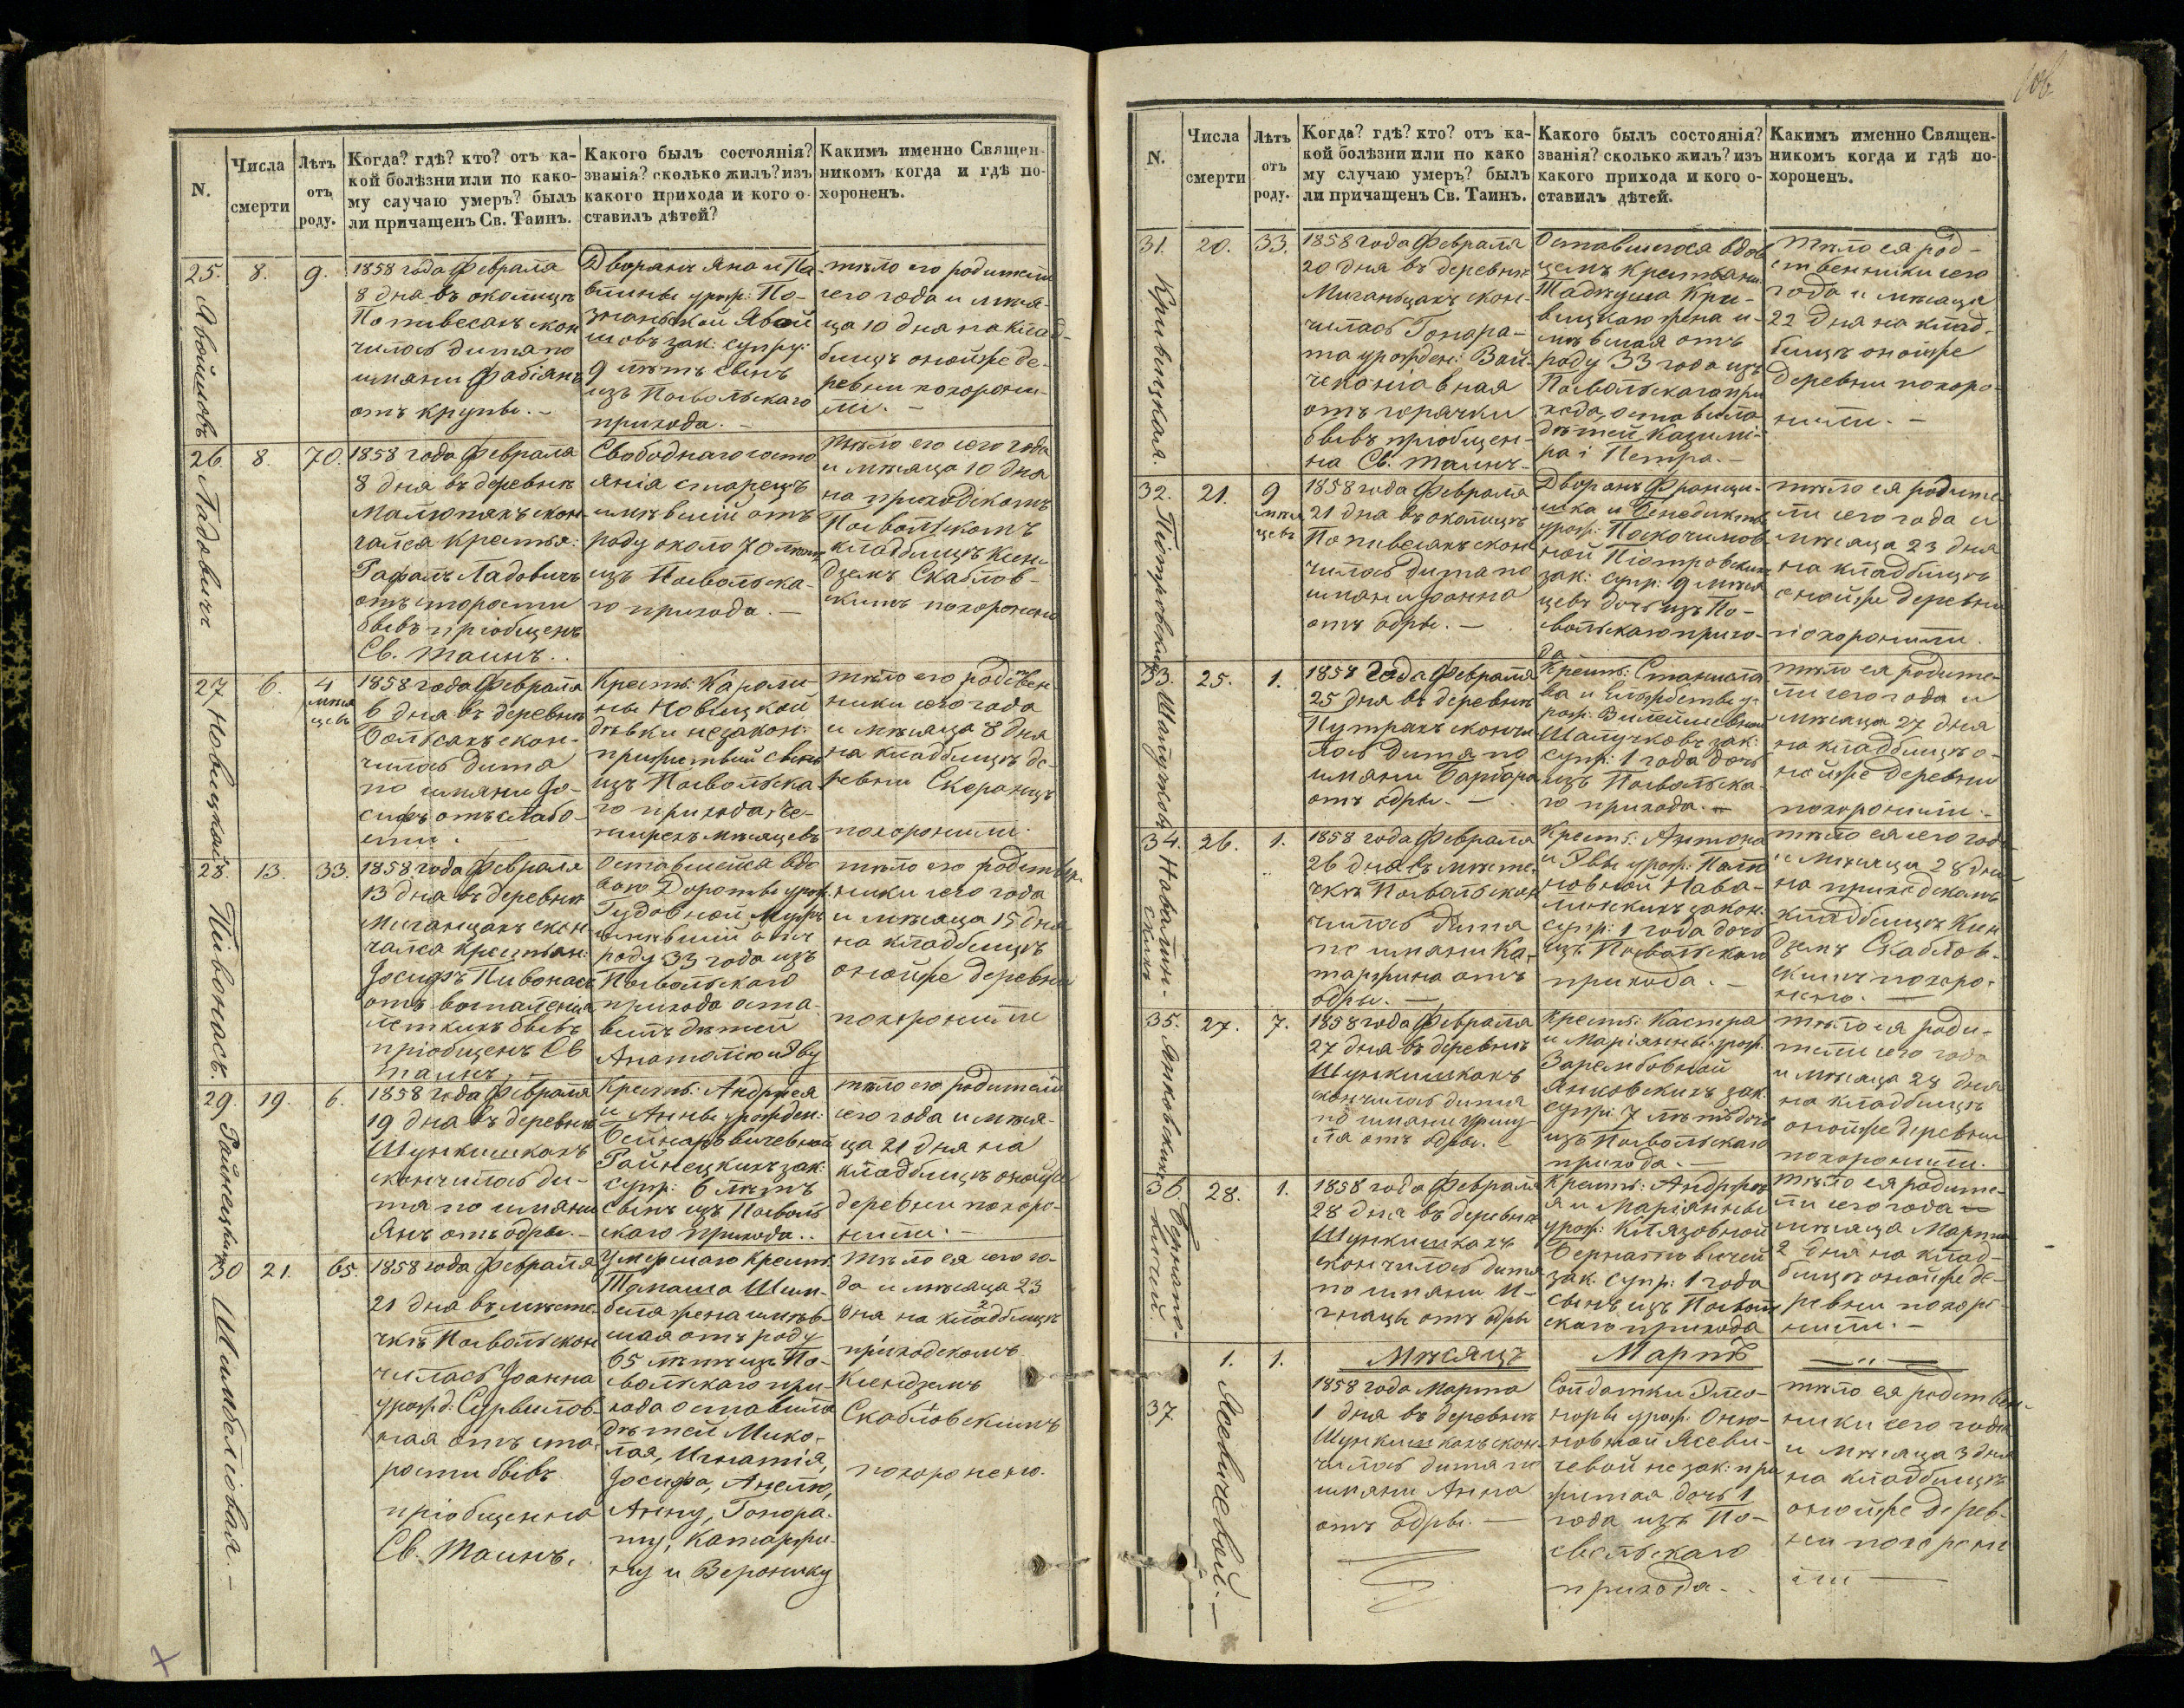 106.
N.
Числа
смерти
Лѣтъ
отъ
роду.
Когда? гдѣ? кто? отъ ка-
кой болѣзни или по како-
му случаю умеръ? былъ
ли причащенъ Св. Таинъ.
Какого былъ состоянія?
званія? сколько жилъ? изъ
какого прихода и кого о-
ставилъ дѣтей?
Какимъ именно Священ-
никомъ когда и гдѣ по-
хороненъ.
25.
8.
9.
1858 года Февраля
8 дня въ околицѣ
скон
чилось дитя по
имяни Фабіянъ
отъ крупы. -
Дворянъ Яна и Па
влины урож: По-
зак: супру:
9 лѣтъ сынъ
изъ Посвольскаго
прихода. -
тѣло его родители
сего года и мѣся-
ца 10 дня на клад-
бищѣ онойже де-
ревни похорони-
ли. -
26.
Ладовичъ
8.
70.
1858 года Февраля
8 дня въ деревнѣ
скон-
чался крестья:
Рафалъ Ладовичъ
отъ старости
бывъ пріобщенъ
Св. Таинъ..
Свободнаго состо
янія старецъ
имѣвшій отъ
роду около 70 лѣтъ
изъ Посвольска-
го прихода. -
тѣло его сего года
и мѣсяца 10 дня
на приходскомъ
Посвольскомъ
кладбищѣ Ксен-
дземъ Скаблов-
скимъ похоронено
27.
Новицкой
6.
4
мѣся
цевъ
1858 года Февраля
6 дня въ деревнѣ
скон-
чилось дитя
по имяни Іо-
сифъ отъ слабо-
сти.
Крест: Кароли
ны Новицкой
дѣвки незакон:
прижитый сынъ
изъ Посвольска
го прихода, че-
тырехъ мѣсяцевъ
тѣло его родствен-
ники сего года
и мѣсяца 8 дня
на кладбищѣ де-
ревни
похоронили.
28.
Пивонасъ.
13.
33.
1858 года Февраля
13 дня въ деревнѣ
Миганцахъ скон-
чался крестьян:
Іосифъ Пивонасъ
отъ воспаленія
легкихъ бывъ
пріобщенъ Св
Таинъ. -
Оставшейся вдо
вою Дороты урож:
Гудовной мужъ
имѣвшій отъ
роду 33 года изъ
Посвольскаго
прихода оста-
вилъ дѣтей
Анатолію и Эву
тѣло его родствен
ники сего года
и мѣсяца 15 дня
на кладбищѣ
онойже деревни
похоронили
29.
Райнецкихъ
19.
6.
1858 года Февраля
19 дня въ деревнѣ
Шункишкахъ
скончилось ди-
тя по имяни
Янъ отъ одры. -
Крест: Андржея
и Анны урожден:
Бейнаровичевной
Райнецкихъ зак:
супр: 6 лѣтъ
сынъ изъ Посволь
скаго прихода..
тѣло его родители
сего года и мѣся-
ца 21 дня на
кладбищѣ онойже
деревни похоро-
нили. -
30
Шимбелiовая. -
21.
65.
1858 года Февраля
21 дня въ мѣсте-
чкѣ Посволь скон
чилась Іоанна
урожд: Сурвилов-
ная отъ ста-
рости бывъ
пріобщенна
Св. Таинъ.
Умершаго крест:
Томаша Шим-
беля жена имѣв-
шая отъ роду
65 лѣтъ изъ По-
свольскаго при-
хода оставила
дѣтей Мико-
лая, Игнатія,
Іосифа, Анелю,
Анну, Гонора-
ту, Катаржи-
ну и Веронику
Тѣло ея сего го-
да и мѣсяца 23
дня на кладбищѣ
приходскомъ
Ксендземъ
Скабловскимъ
похоронено.
N.
Числа
смерти
Лѣтъ
отъ
роду.
Когда? гдѣ? кто? отъ ка-
кой болѣзни или по како
му случаю умеръ? былъ
ли причащенъ Св. Таинъ.
Какого былъ состоянія?
званія? сколько жилъ? изъ
какого прихода и кого о-
ставилъ дѣтей.
Какимъ именно Священ-
никомъ когда и гдѣ по-
хороненъ.
31.
Кривицкая.
20.
33.
1858 года Февраля
20 дня въ деревнѣ
Миганцахъ скон-
чилась Гонора-
та урожден: Вай-
отъ горячки
бывъ пріобщен-
на Св. Таинъ-
Оставшагося вдов
цемъ крестьяни:
Тадеуша Кри-
вицкаго жена и-
мѣвшая отъ
роду 33 года изъ
Посвольскаго при
хода, оставила
дѣтей Казими-
ра і Петра. -
Тѣло ея род-
ственники сего
года и мѣсяца
22 дня на клад-
бищѣ онойже
деревни похоро-
нили. -
32.
Піотровскихъ
21.
9
мѣся
цевъ
1858 года Февраля
21 дня въ околицѣ
скон
чилось дитя по
имяни Іоанна
отъ одры. -
Дворянъ Франци-
шка и Бенедикты
урож:
ной Піотровскихъ
зак: супр: 9 мѣся
цевъ дочь изъ По-
свольскаго прихо-
да
тѣло ея родите
ли сего года и
мѣсяца 23 дня
на кладбищѣ
онойже деревни
похоронили.
33.
25.
1.
1858 Года Февраля
25 дня въ деревнѣ
Путрахъ скончи
лось дитя по
имяни Барбара
отъ одры. -
Крест: Станисла
ва и Елжбеты у-
рож:
зак:
супр: 1 года дочь
изъ Посвольска-
го прихода. -
тѣло ея родите-
ли сего года и
мѣсяца 27 дня
на кладбищѣ о-
нойже деревни
похоронили. -
34.
26.
1.
1858 года Февраля
26 дня въ мѣсте-
чкѣ Посволь скон
чилось дитя
по имяни Ка-
таржина отъ
одры. -
Крест: Антона
и Эвы урож:
закон:
супр: 1 года дочь
изъ Посвольскаго
прихода. -
тѣло ея сего года
и мѣсяца 28 дня
на приходскомъ
кладбищѣ Ксен
дземъ Скаблов-
скимъ похоро-
нено. -
35.
Янковскихъ
27.
7.
1858 года Февраля
27 дня въ деревнѣ
Шункишкахъ
скончилось дитя
по имяни Уршу
ля отъ одры. -
Крест: Каспера
и Маріянны урож:
Зарембовной
Янковскихъ зак:
супр: 7 лѣтъ дочь
изъ Посвольскаго
прихода. -
Тѣло ея роди-
тели сего года
и мѣсяца 28 дня
на кладбищѣ
онойже деревни
похоронили.
36.
28.
1.
1858 года Февраля
28 дня въ деревнѣ
Шункишкахъ
скончилось дитя
по имяни И-
гнацы отъ одры
Крест: Андрже
я и Маріянны
урож:
зак: супр: 1 года
сынъ изъ Посволь
скаго прихода
тѣло ея родите-
ли сего года
мѣсяца Марта
2 дня на клад-
бищѣ онойже де-
ревни похоро-
нили. -
Мѣсяцъ
Мартъ
37
Ясевичевой. -
1.
1.
1858 года Марта
1 дня въ деревнѣ
Шункишкахъ скон-
чилось дитя по
имяни Анна
отъ одры. -
Солдатки Элео-
норы урож:
Ясеви-
чевой незак: при
житая дочь 1
года изъ По-
свольскаго
прихода. -
тѣло ея родствен-
ники сего года
и мѣсяца 3 дня
на кладбищѣ
онойже дерев-
ни похорони
ли -